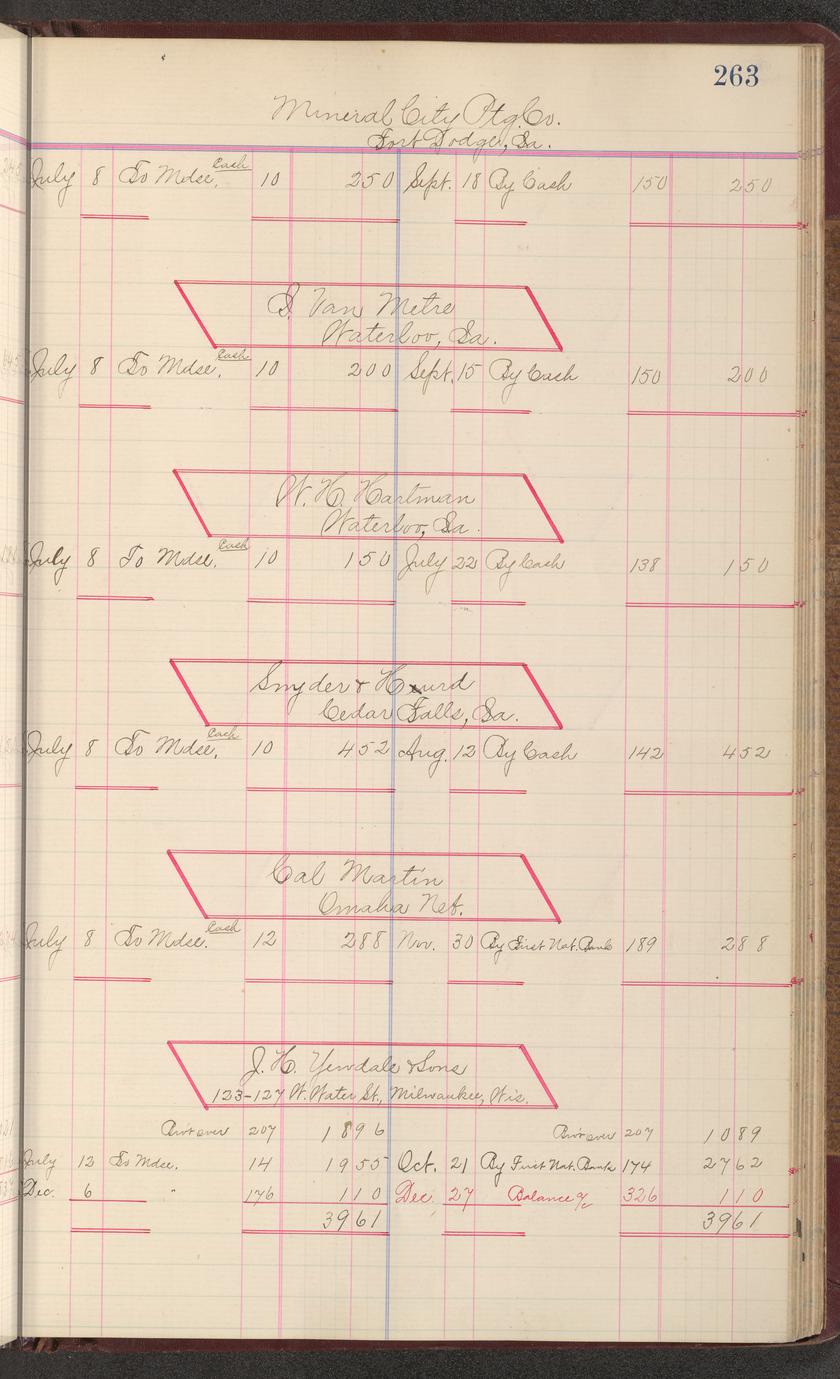 263
Mineral City Ptg. Co.
Fort Dodge, Ia.
July 8 To Mdse. Cash 10 250 Sept. 18 By Cash 150 250
S. Van Metre
Waterloo, Ia.
July 8 To Mdse. Cash 10 200 Sept. 15 By Cash 150 200
W. H. Hartman
Waterloo, Ia.
July 8 To Mdse. Cash 10 150 July 22 By Cash 138 150
Snyder & Hurd
Cedar Falls, Ia.
July 8 To Mdse. Cash 10 452 Aug. 12 By Cash 142 452
Cal Martin
Omaha Neb.
July 8 To Mdse. Cash 12 288 Nov. 30 By First Nat. Bank 189 288
J. H. Yewdale & Sons
123-127 W. Water St., Milwaukee, Wis.
Bro't over 207 1896 Bro't over 207 1089
July 12 To Mdse. 14 1955 Oct. 21 By First Nat. Bank 174 2762
Dec. 6 " 176 110 Dec. 27 Balance % 326 110
3961 3961